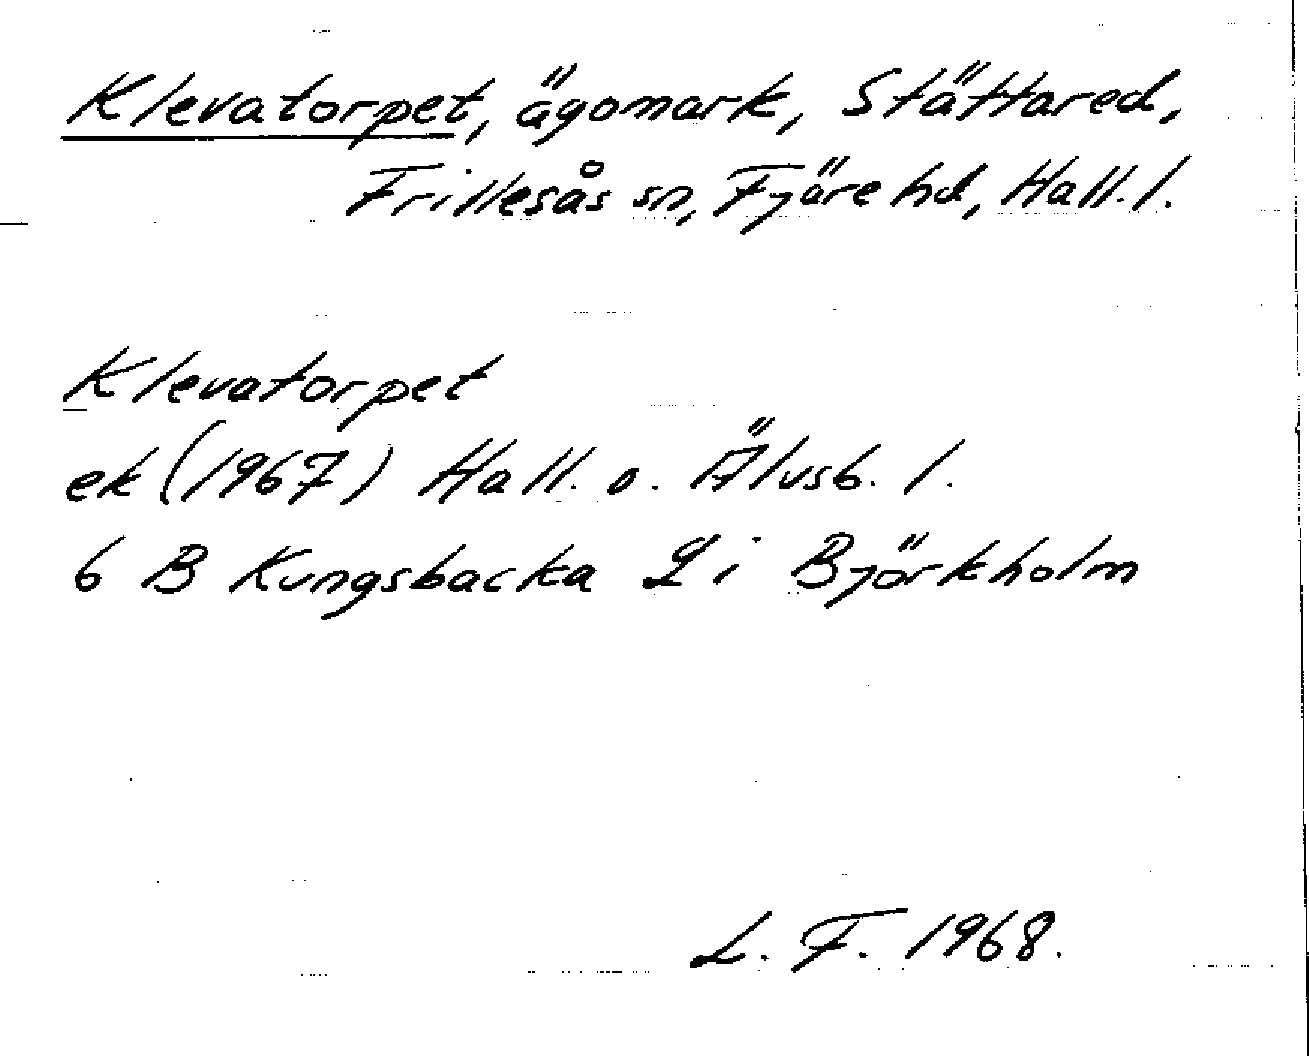 Klevatorpet, ägomark, Stättared,
Frillesås sn, Fjäre hd, Hall. l.
Klevatorpet
ek (1967) Hall. o. Älvsb. l.
6 B Kungsbacka 2 i Björkholm
L. F. 1968.